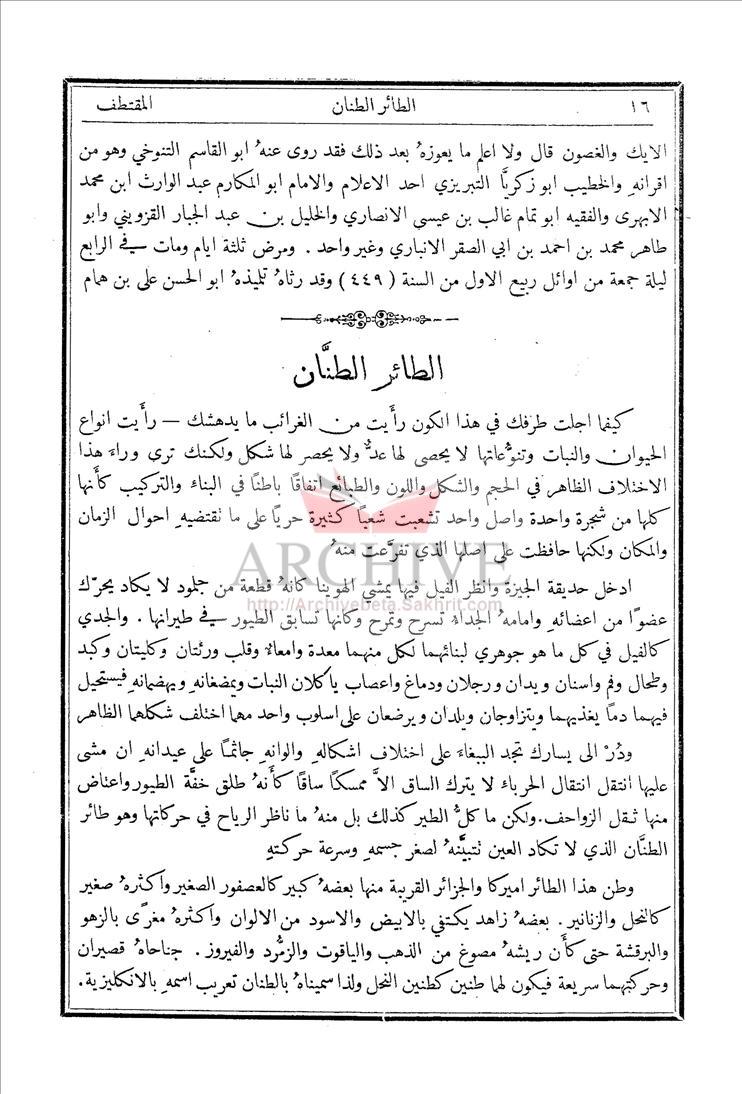 ١٦ الطائر الطنان المقتطف
الايك والغصون قال ولا اعلم ما يعوزهُ بعد ذلك فقد روى عنهُ ابو القاسم التنوخي وهو من
اقرانهِ والخطيب ابو زكريَّا التبريزي احد الاعلام والامام ابو المكارم عبد الوارث ابن محمد
الابهرى والفقيه ابو تمام غالب بن عيسى الانصاري والخليل بن عبد الجبار القزويني وابو
طاهر محمد بن احمد بن ابي الصقر الانباري وغير واحد . ومرض ثلثة ايام ومات في الرابع
ليلة جمعة من اوائل ربيع الاول من السنة ( ٤٤٩ ) وقد رثاهُ تلميذهُ ابو الحسن على بن همام
الطائر الطنَّان
كيفما اجلت طرفك في هذا الكون رأيت من الغرائب ما يدهشك — رأيت انواع
الحيوان والنبات وتنوُّعاتها لا يحصى لها عدٌّ ولا يحصر لها شكل ولكنك ترى وراءَ هذا
الاختلاف الظاهر في الحجم والشكل واللون والطبائع اتفاقًا باطنًا في البناء والتركيب كأنها
كلها من شجرة واحدة واصل واحد تشعبت شعبًا كثيرة حريًا على ما نقتضيهِ احوال الزمان
والمكان ولكنها حافظت على اصلها الذي تفرَّعت منهُ
ARCHIVE
http://Archivebeta.Sakhrit.com
ادخل حديقة الجيزة وانظر الفيل فيها يمشي الهوينا كانهُ قطعة من جلمود لا يكاد يحرّك
عضوًا من اعضائهِ وامامهُ الجداءَ تسرح وتمرح وكانها تسابق الطيور في طيرانها . والجدي
كالفيل في كل ما هو جوهري لبنائهما لكل منهما معدة وامعاءٌ وقلب ورئتان وكليتان وكبد
وطحال وفم واسنان ويدان ورجلان ودماغ واعصاب ياكلان النبات ويمضغانهِ ويهضمانهِ فيستحيل
فيهما دمًا يغذيهما ويتزاوجان ويلدان ويرضعان على اسلوب واحد مهما اختلف شكلهما الظاهر
ودُرْ الى يسارك تجد الببغاءَ على اختلاف اشكالهِ والوانهِ جاثمًا على عيدانهِ ان مشى
عليها انتقل انتقال الحرباء لا يترك الساق الاَّ ممسكًا ساقًا كأَنهُ طلق خفَّة الطيور واعتاض
منها ثقل الزواحف. ولكن ما كلُّ الطير كذلك بل منهُ ما ناظر الرياح في حركاتها وهو طائر
الطنَّان الذي لا تكاد العين نتبيَّنهُ لصغر جسمهِ وسرعة حركتهِ
وطن هذا الطائر اميركا والجزائر القريبة منها بعضهُ كبير كالعصفور الصغير وأكثرهُ صغير
كالنحل والزنانير . بعضهُ زاهد يكتفي بالابيض والاسود من الالوان وأكثرهُ مغرًى بالزهو
والبرقشة حتى كأَن ريشهُ مصوغ من الذهب والياقوت والزمُّرد والفيروز . جناحاهُ قصيران
وحركتهما سريعة فيكون لهما طنين كطنين النحل ولذا سميناهُ بالطنان تعريب اسمهِ بالانكليزية .